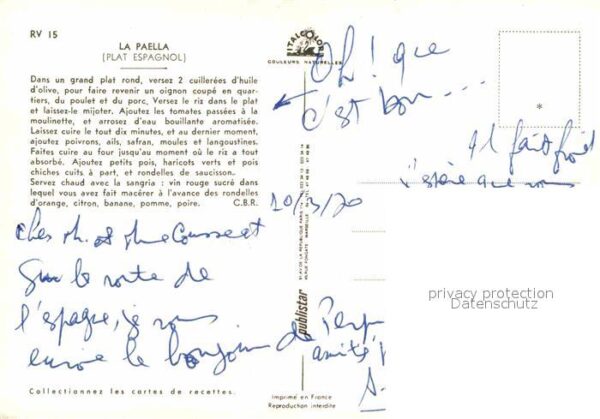 RV 15
LA PAELLA
(PLAT ESPAGNOL)
Dans un grand plat rond, versez 2 cuillerées d'huile
d'olive, pour faire revenir un oignon coupé en quar-
tiers, du poulet et du porc. Versez le riz dans le plat
et laissez-le mijoter. Ajoutez les tomates passées à la
moulinette, et arrosez d'eau bouillante aromatisée.
Laissez cuire le tout dix minutes, et au dernier moment,
ajoutez poivrons, ails, safran, moules et langoustines.
Faites cuire au four jusqu'au moment où le riz a tout
absorbé. Ajoutez petits pois, haricots verts et pois
chiches cuits à part, et rondelles de saucisson.
Servez chaud avec la sangria : vin rouge sucré dans
lequel vous avez fait macérer à l'avance des rondelles
d'orange, citron, banane, pomme, poire. C.B.R.
ITALCOLOR
COULEURS NATURELLES
Oh ! que
c'est bon...
Il fait froid
j'espère que vous
10/3/70
Sur la route de
l'espagne, je vous
envoie le bonjour de Perp
amité
publistar
Collectionnez les cartes de recettes.
Imprimé en France
Reproduction interdite
privacy protection
Datenschutz